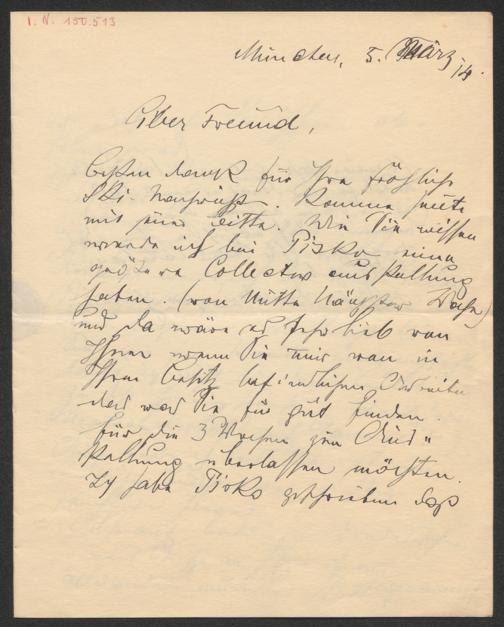 I. N. 150.513
München, 5. März 14.
Lieber Freund,
besten dank für Ihre fröhliche
Ski-. Komme heute
mit einer bitte. Wie Sie wissen
werde ich bei Pisko eine
größere Collectiv ausstellung
haben. (von Mitte Nächster Woche)
und da wäre es sehr lieb von
Ihnen wenn Sie mir von in
Ihrem besitz befindlichen
das was Sie für gut finden.
für die 3 Wochen zur Aus"
stellung überlassen möchten.
Ich habe Pisko geschrieben daß